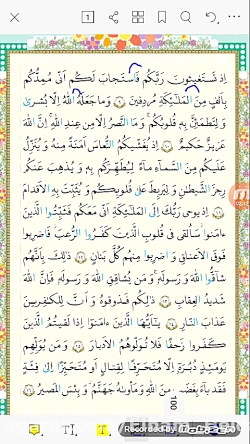 إِذْ تَسْتَغِيثُونَ رَبَّكُمْ فَاسْتَجَابَ لَكُمْ أَنِّى مُمِدُّكُمْ
بِأَلْفٍ مِنَ الْمَلٰٓئِكَةِ مُرْدِفِينَ ٩ وَمَا جَعَلَهُ اللّٰهُ إِلَّا بُشْرٰى
وَلِتَطْمَئِنَّ بِهِ قُلُوبُكُمْ وَمَا النَّصْرُ إِلَّا مِنْ عِنْدِ اللّٰهِ إِنَّ اللّٰهَ
عَزِيزٌ حَكِيمٌ ١٠ إِذْ يُغَشِّيكُمُ النُّعَاسَ أَمَنَةً مِنْهُ وَيُنَزِّلُ
عَلَيْكُمْ مِنَ السَّمَآءِ مَآءً لِيُطَهِّرَكُمْ بِهِ وَيُذْهِبَ عَنْكُمْ
رِجْزَ الشَّيْطَانِ وَلِيَرْبِطَ عَلٰى قُلُوبِكُمْ وَيُثَبِّتَ بِهِ الْأَقْدَامَ
١١ إِذْ يُوحِى رَبُّكَ إِلَى الْمَلٰٓئِكَةِ أَنِّى مَعَكُمْ فَثَبِّتُوا الَّذِينَ
ءَامَنُوا سَأُلْقِى فِى قُلُوبِ الَّذِينَ كَفَرُوا الرُّعْبَ فَاضْرِبُوا
فَوْقَ الْأَعْنَاقِ وَاضْرِبُوا مِنْهُمْ كُلَّ بَنَانٍ ١٢ ذٰلِكَ بِأَنَّهُمْ
شَآقُّوا اللّٰهَ وَرَسُولَهُ وَمَنْ يُشَاقِقِ اللّٰهَ وَرَسُولَهُ فَإِنَّ اللّٰهَ
شَدِيدُ الْعِقَابِ ١٣ ذٰلِكُمْ فَذُوقُوهُ وَأَنَّ لِلْكٰفِرِينَ
عَذَابَ النَّارِ ١٤ يٰٓأَيُّهَا الَّذِينَ ءَامَنُوٓا إِذَا لَقِيتُمُ الَّذِينَ
كَفَرُوا زَحْفًا فَلَا تُوَلُّوهُمُ الْأَدْبَارَ ١٥ وَمَنْ يُوَلِّهِمْ
يَوْمَئِذٍ دُبُرَهُ إِلَّا مُتَحَرِّفًا لِقِتَالٍ أَوْ مُتَحَيِّزًا إِلٰى فِئَةٍ
فَقَدْ بَآءَ بِغَضَبٍ مِنَ اللّٰهِ وَمَأْوٰىهُ جَهَنَّمُ وَبِئْسَ الْمَصِيرُ ١٦
100